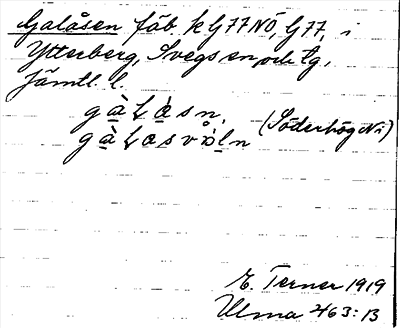 Galåsen fäb. k G77NÖ, G77, i
Ytterberg, Svegs sn och tg,
Jämtl. l.
gàʟåsn,
gàʟåsvòln (Söderhög Nv)
E. Terner 1919
Ulma 463:13